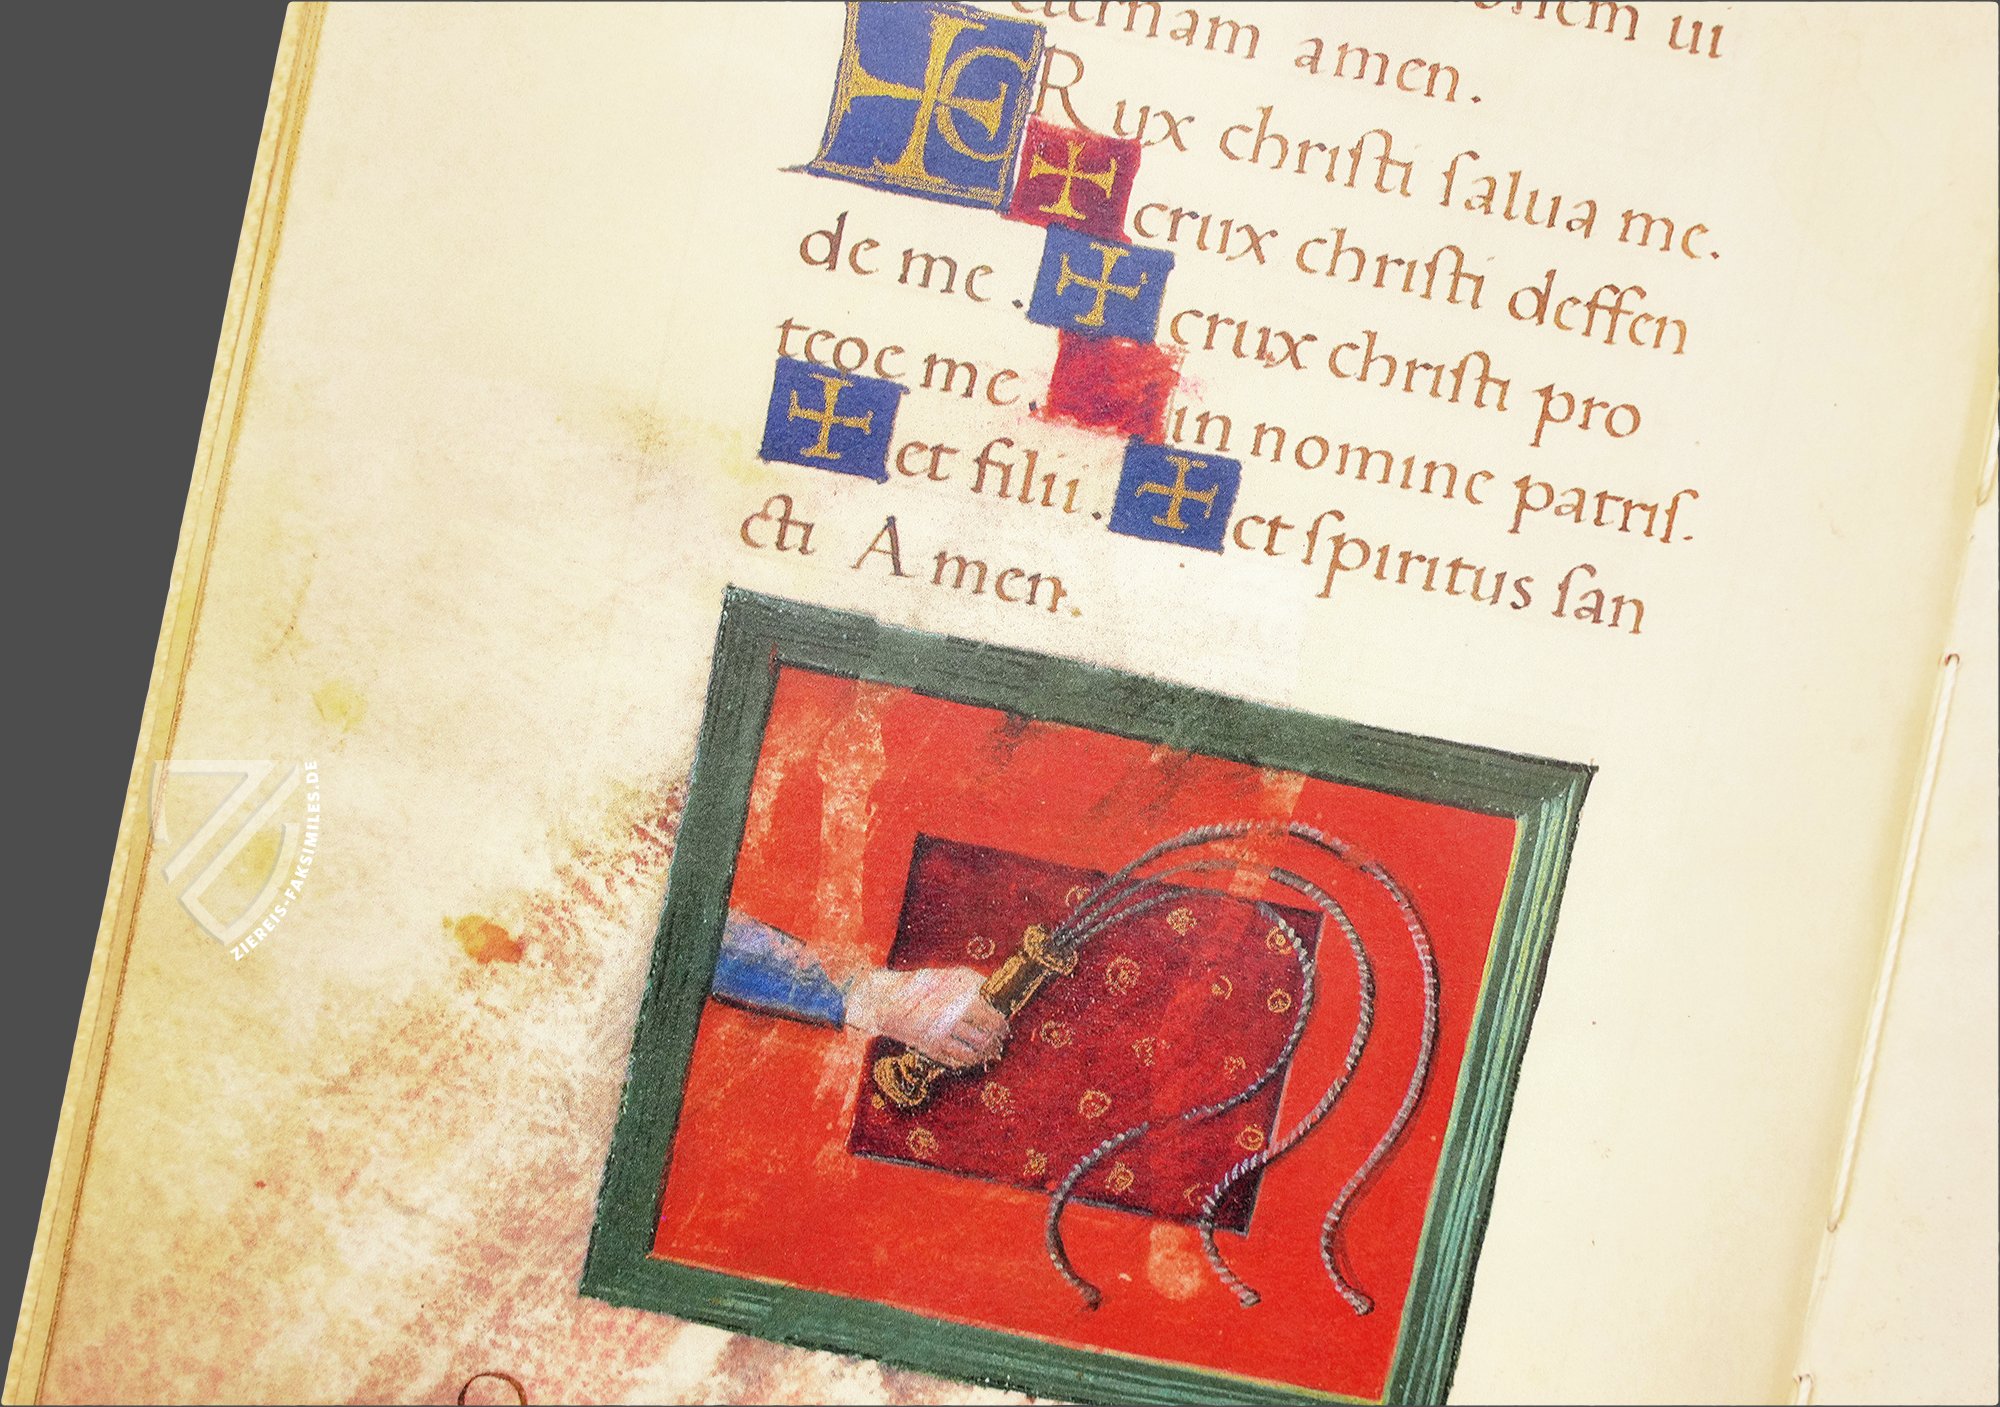 ui
eternam amen.
CRux christi salua me.
✠ crux christi deffen
de me. ✠ crux christi pro
tege me. in nomine patris.
✠ et filii. ✠ et spiritus san
cti Amen.
ZIEREIS-FAKSIMILES.DE